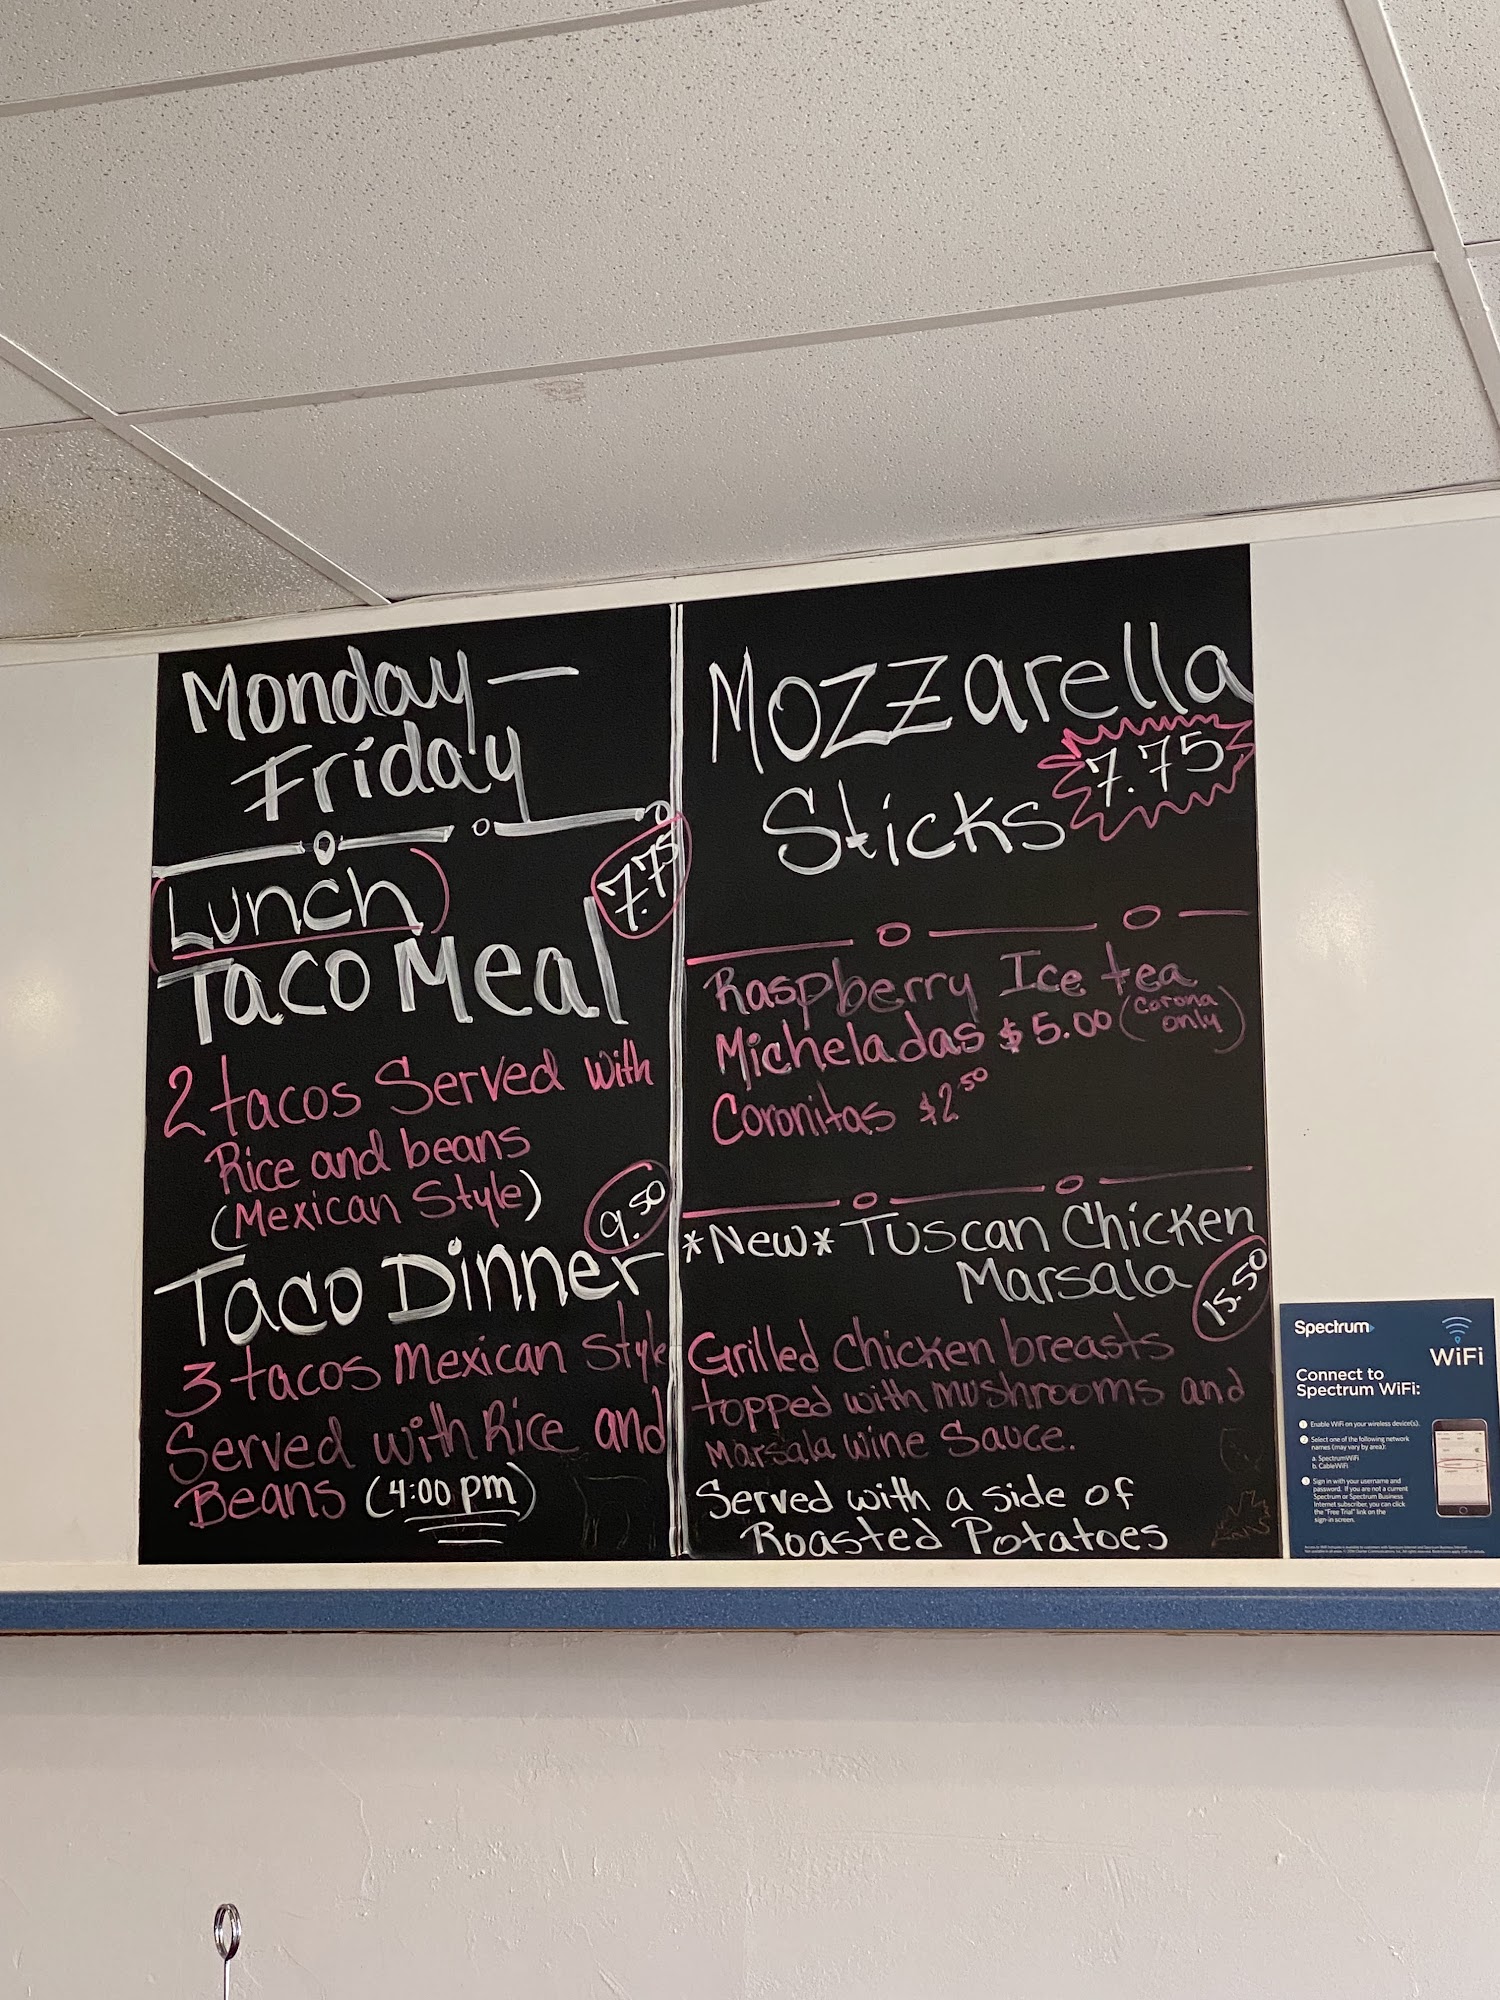 Monday —
Friday
(Lunch)
7.75
Taco Meal
2 tacos Served with
Rice and beans
(Mexican Style)
9.50
Taco Dinner
3 tacos Mexican Style
Served with Rice and
Beans (4:00 pm)
Mozzarella
Sticks 7.75
Raspberry Ice tea
Micheladas $5.00 (Corona only)
Coronitas $2.50
*New* Tuscan Chicken
Marsala 15.50
Grilled Chicken breasts
topped with mushrooms and
Marsala wine Sauce.
Served with a side of
Roasted Potatoes
Spectrum
WiFi
Connect to
Spectrum WiFi:
1 Enable WiFi on your wireless device(s).
2 Select one of the following network
names (may vary by area):
a. SpectrumWiFi
b. CableWiFi
3 Sign in with your username and
password. If you are not a current
Spectrum or Spectrum Business
Internet subscriber, you can click
the "Free Trial" link on the
sign-in screen.